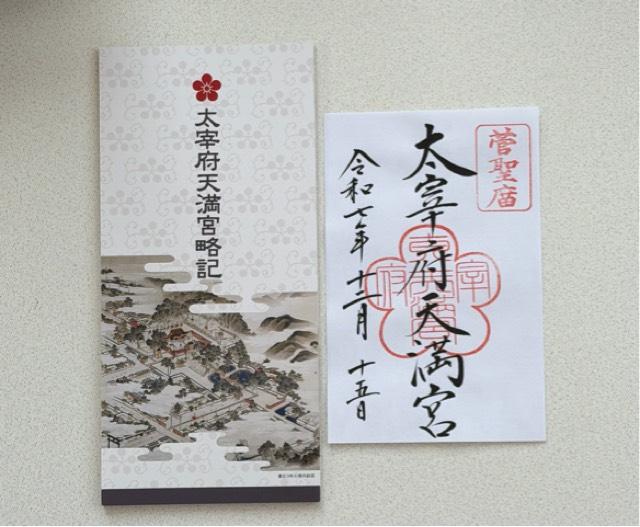 太宰府天満宮略記
菅聖庿
太宰府天満宮
令和七年十二月十五日